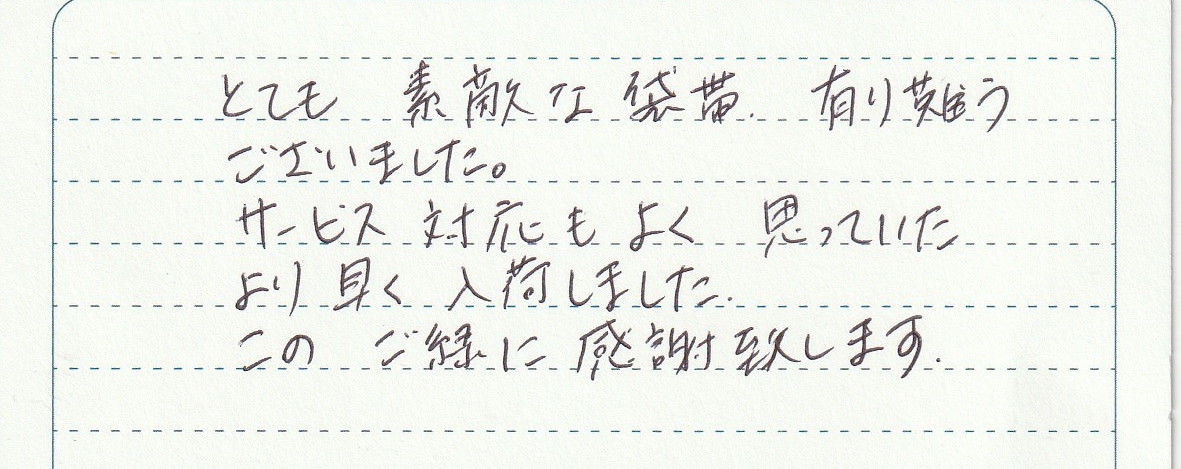 とても 素敵な袋帯. 有り難う
ございました。
サービス対応もよく 思っていた
より早く入荷しました.
この ご縁に感謝致します.